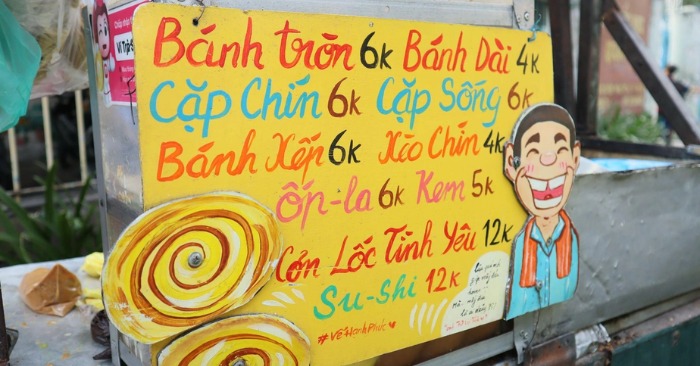 Bánh tròn 6K Bánh Dài 4K
Cặp Chín 6K Cặp Sống 6K
Bánh Xếp 6K Xào Chín 4K
ốp-la 6K Kem 5K
Cơn Lốc Tình Yêu 12K
Su-shi 12K
#VéHạnhPhúc